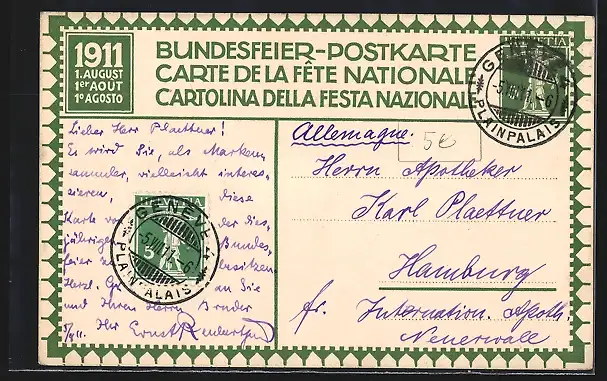 1911
1. AUGUST
1er AOUT
1o AGOSTO
BUNDESFEIER-POSTKARTE
CARTE DE LA FÊTE NATIONALE
CARTOLINA DELLA FESTA NAZIONALE
HELVETIA
GENÈVE
PLAINPALAIS
Lieber Herr Plaettner!
Es wird Sie, als Marken-
sammler, vielleicht interes-
sieren, diese
Karte der dies-
jährigen Bundes-
feier zu besitzen
Herzl. an Sie
und Ihren Herrn Bruder
Ihr Ernst
GENÈVE
5
PLAINPALAIS
Allemagne.
5€
Herrn Apotheker
Karl Plaettner
Hamburg
fr. Internation. Apoth.
Neuerwall